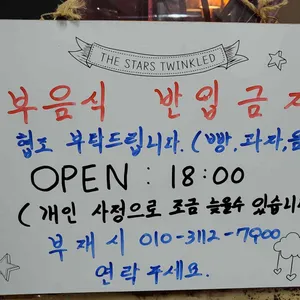 THE STARS TWINKLED
부음식 반입금지
협조 부탁드립니다. (빵, 과자, 음
OPEN : 18:00
( 개인 사정으로 조금 늦을수 있습니
부재시 010-3112-7900
연락주세요.